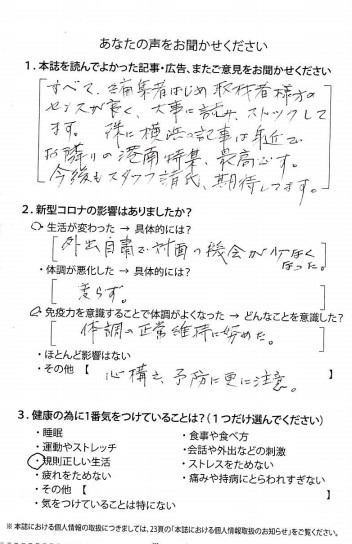 あなたの声をお聞かせください
1. 本誌を読んでよかった記事・広告、またご意見をお聞かせください
すべて、編集者はじめ取材者様方の
センスが良く、大事に読み、ストックして
ます。 殊に横浜の記事は身近で
お隣りの港南特集、最高です。
今後もスタッフ諸氏、期待してます。
2. 新型コロナの影響はありましたか?
・生活が変わった → 具体的には?
外出自粛で対面の機会が少なく
なった。
・体調が悪化した → 具体的には?
変らず。
・免疫力を意識することで体調がよくなった → どんなことを意識した?
体調の正常維持に努めた。
・ほとんど影響はない
・その他 【 心構え、予防に更に注意。 】
3. 健康の為に1番気をつけていることは?(1つだけ選んでください)
・睡眠 ・食事や食べ方
・運動やストレッチ ・会話や外出などの刺激
・規則正しい生活 ・ストレスをためない
・疲れをためない ・痛みや持病にとらわれすぎない
・その他 【 】
・気をつけていることは特にない
※ 本誌における個人情報の取扱につきましては、23頁の「本誌における個人情報取扱のお知らせ」をご覧ください。